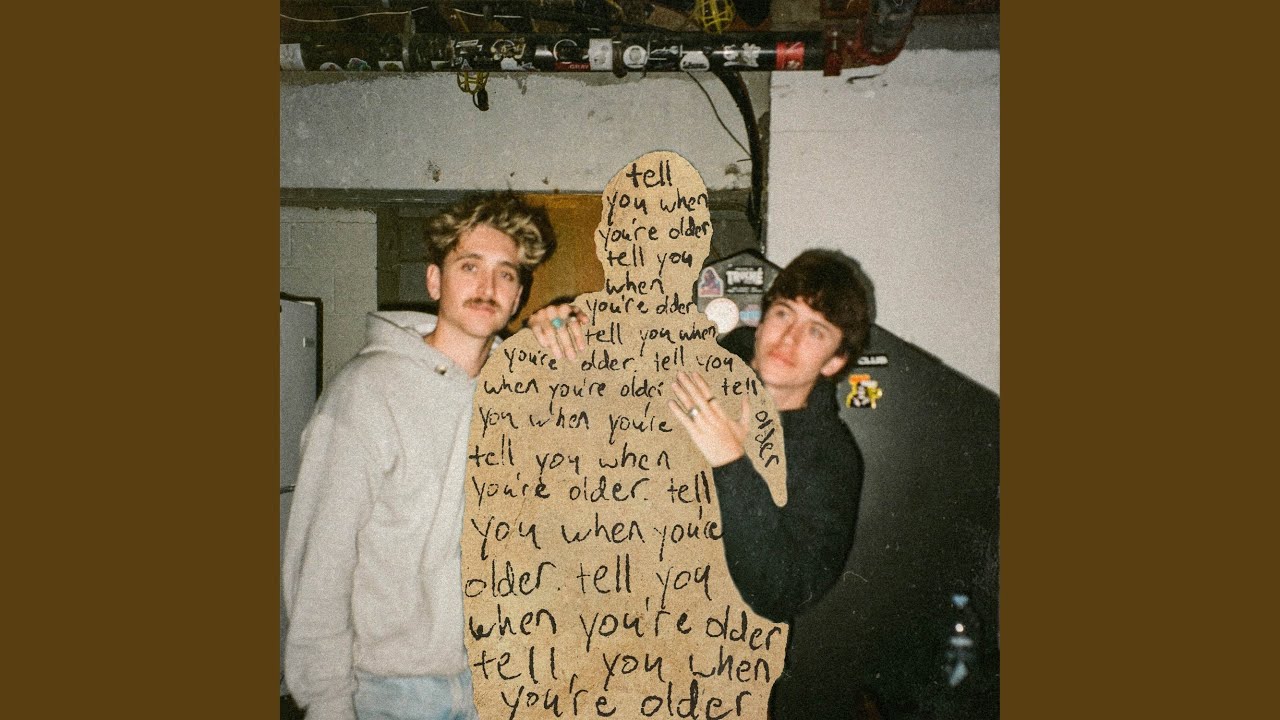 tell
you when
you're older
tell you
when
you're older
tell you when
you're older. tell you
when you're older tell
you when you're older
tell you when
you're older. tell
you when you're
older. tell you
when you're older
tell you when
you're older
CLUB